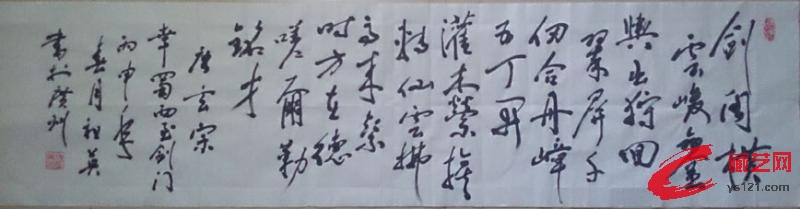 剑阁横
雲峻銮
舆出狩回
翠屏千
仞合丹嶂
五丁开
灌木萦旗
转仙雲拂
马来乘
时方在德
嗟爾勒
铭才
唐玄宗
幸蜀西至剑门
丙申年
春月祖英
书於
艺网
ys121.com